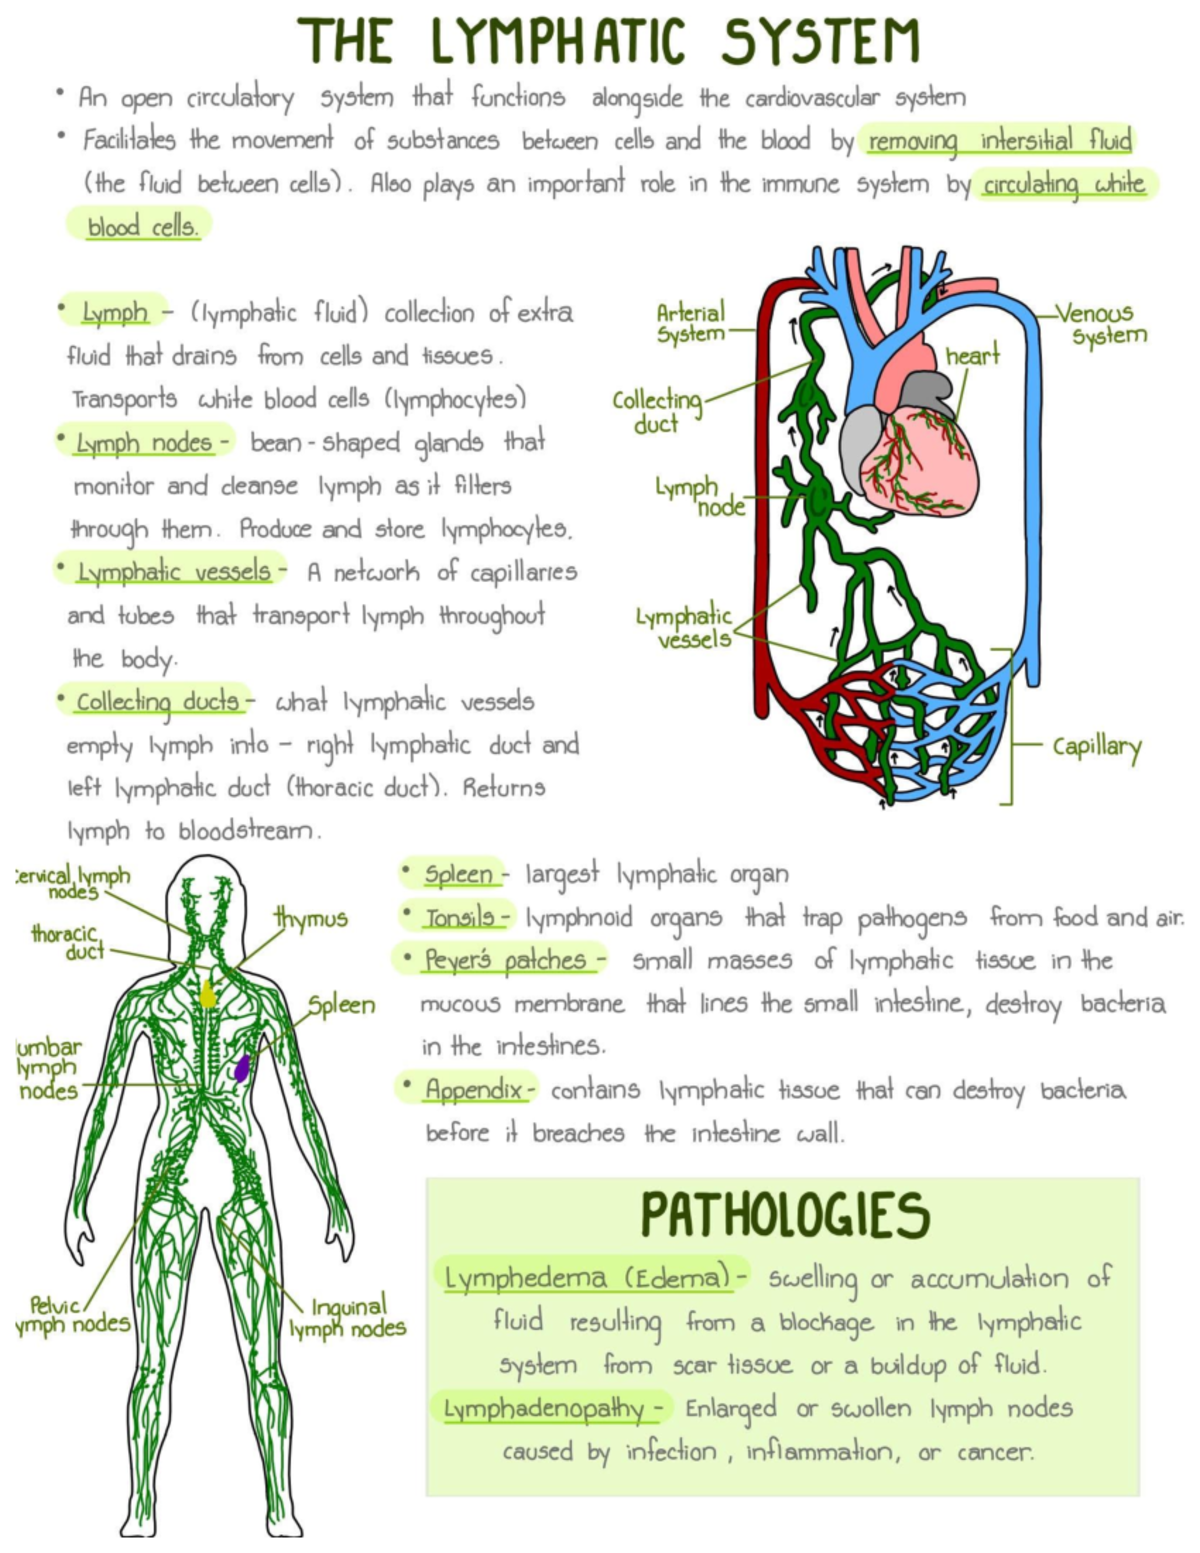 THE LYMPHATIC SYSTEM
• An open circulatory system that functions alongside the cardiovascular system
• Facilitates the movement of substances between cells and the blood by removing intersitial fluid
(the fluid between cells). Also plays an important role in the immune system by circulating white
blood cells.
• Lymph - (lymphatic fluid) collection of extra
fluid that drains from cells and tissues.
Transports white blood cells (lymphocytes)
• Lymph nodes - bean-shaped glands that
monitor and cleanse lymph as it filters
through them. Produce and store lymphocytes.
• Lymphatic vessels - A network of capillaries
and tubes that transport lymph throughout
the body.
• Collecting ducts - what lymphatic vessels
empty lymph into - right lymphatic duct and
left lymphatic duct (thoracic duct). Returns
lymph to bloodstream.
Arterial
System
Venous
System
heart
Collecting
duct
Lymph
node
Lymphatic
vessels
Capillary
cervical lymph
nodes
thoracic
duct
thymus
Spleen
umbar
lymph
nodes
Pelvic
ymph nodes
Inguinal
lymph nodes
• Spleen - largest lymphatic organ
• Tonsils - lymphnoid organs that trap pathogens from food and air.
• Peyer's patches - small masses of lymphatic tissue in the
mucous membrane that lines the small intestine, destroy bacteria
in the intestines.
• Appendix - contains lymphatic tissue that can destroy bacteria
before it breaches the intestine wall.
PATHOLOGIES
Lymphedema (Edema) - swelling or accumulation of
fluid resulting from a blockage in the lymphatic
system from scar tissue or a buildup of fluid.
Lymphadenopathy - Enlarged or swollen lymph nodes
caused by infection, inflammation, or cancer.